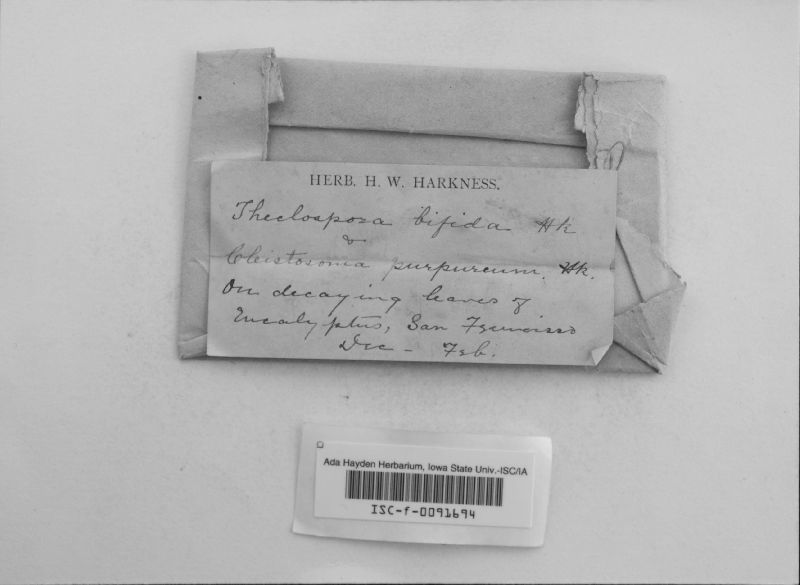 HERB. H. W. HARKNESS.
Theclospora bifida Hk
&
Cleistosoma purpureum. Hk.
On decaying leaves of
Eucalyptus, San Francisco
Dec - Feb.
Ada Hayden Herbarium, Iowa State Univ.-ISC/IA
ISC-f-0091694